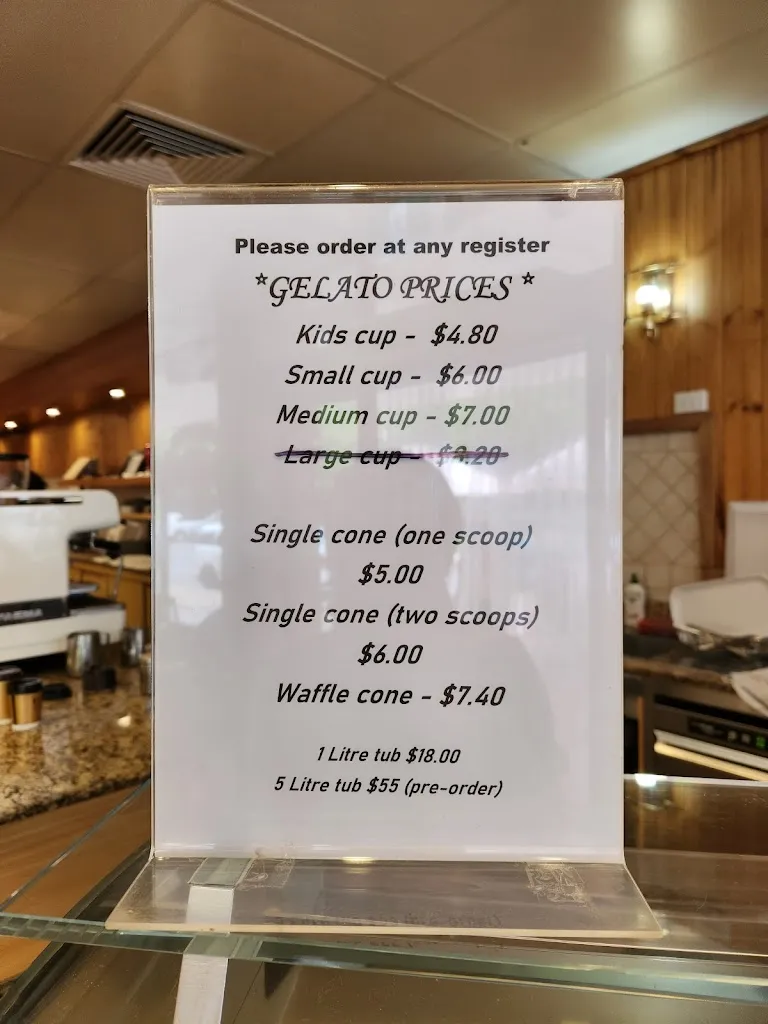 Please order at any register
*GELATO PRICES *
Kids cup - $4.80
Small cup - $6.00
Medium cup - $7.00
Large cup - $8.20
Single cone (one scoop)
$5.00
Single cone (two scoops)
$6.00
Waffle cone - $7.40
1 Litre tub $18.00
5 Litre tub $55 (pre-order)